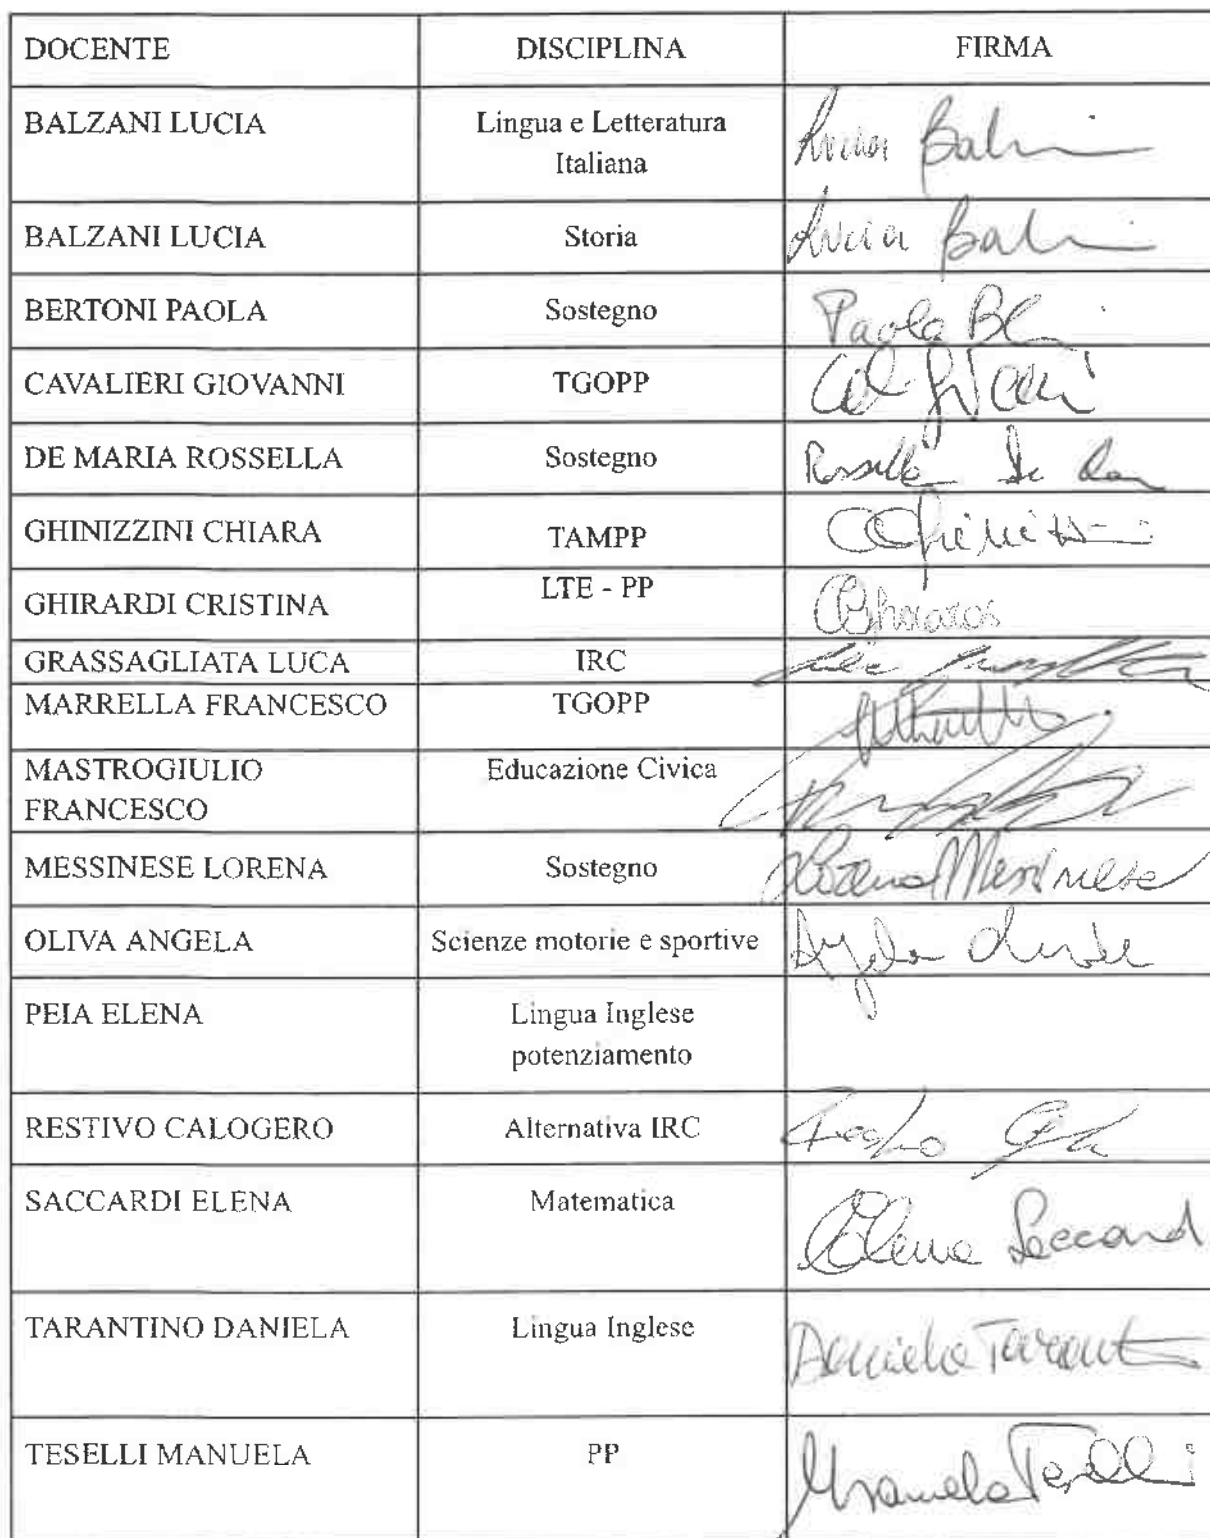 DOCENTE DISCIPLINA FIRMA
BALZANI LUCIA Lingua e Letteratura Lucia
Italiana
BALZANI LUCIA Storia Lucia
BERTONI PAOLA Sostegno Paola
CAVALIERI GIOVANNI TGOPP
DE MARIA ROSSELLA Sostegno Rossella De
GHINIZZINI CHIARA TAMPP
GHIRARDI CRISTINA LTE - PP
GRASSAGLIATA LUCA IRC
MARRELLA FRANCESCO TGOPP
MASTROGIULIO Educazione Civica
FRANCESCO
MESSINESE LORENA Sostegno Lorena Messinese
OLIVA ANGELA Scienze motorie e sportive
PEIA ELENA Lingua Inglese
potenziamento
RESTIVO CALOGERO Alternativa IRC
SACCARDI ELENA Matematica Elena Saccard
TARANTINO DANIELA Lingua Inglese Daniela Tarant
TESELLI MANUELA PP Manuela Teselli